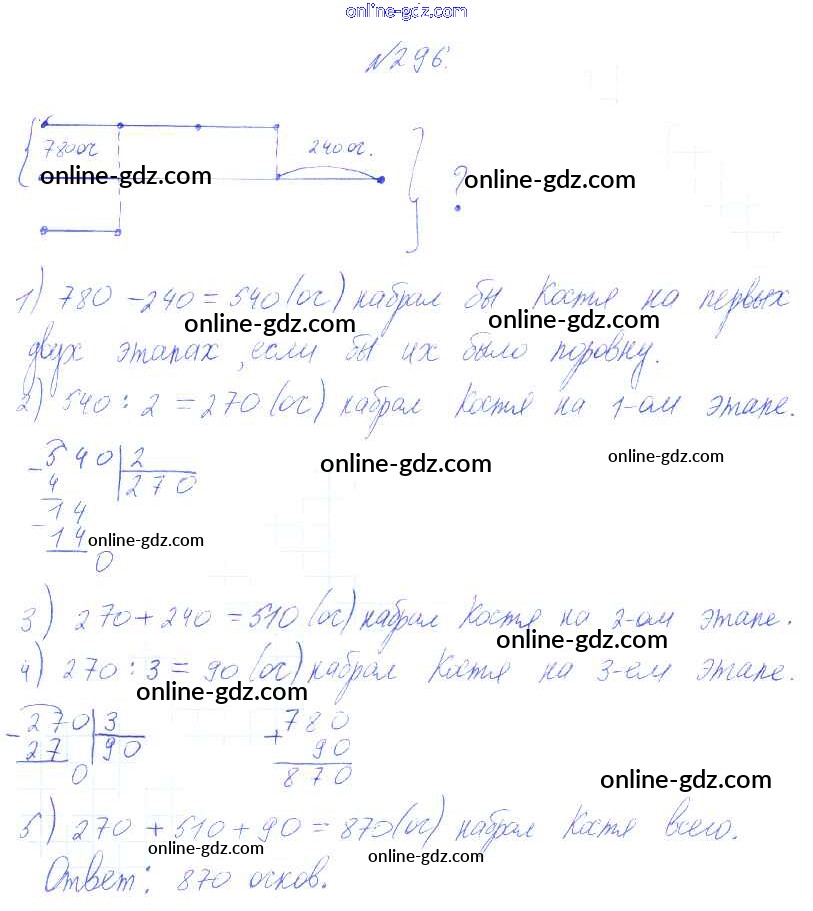 online-gdz.com
№296.
780 ог
240 ог.
?
online-gdz.com
online-gdz.com
1) 780 - 240 = 540 (ог) набрал бы Костя на первых
online-gdz.com
online-gdz.com
двух этапах, если бы их было поровну.
2) 540 : 2 = 270 (ог) набрал Костя на 1-ом этапе.
- 540 | 2
4 | 270
online-gdz.com
online-gdz.com
14
- 14
online-gdz.com
0
3) 270 + 240 = 510 (ог) набрал Костя на 2-ом этапе.
online-gdz.com
4) 270 : 3 = 90 (ог) набрал Костя на 3-ем этапе.
online-gdz.com
- 270 | 3
27 | 90
0
+ 780
90
870
online-gdz.com
5) 270 + 510 + 90 = 870 (ог) набрал Костя всего.
online-gdz.com
online-gdz.com
Ответ: 870 очков.